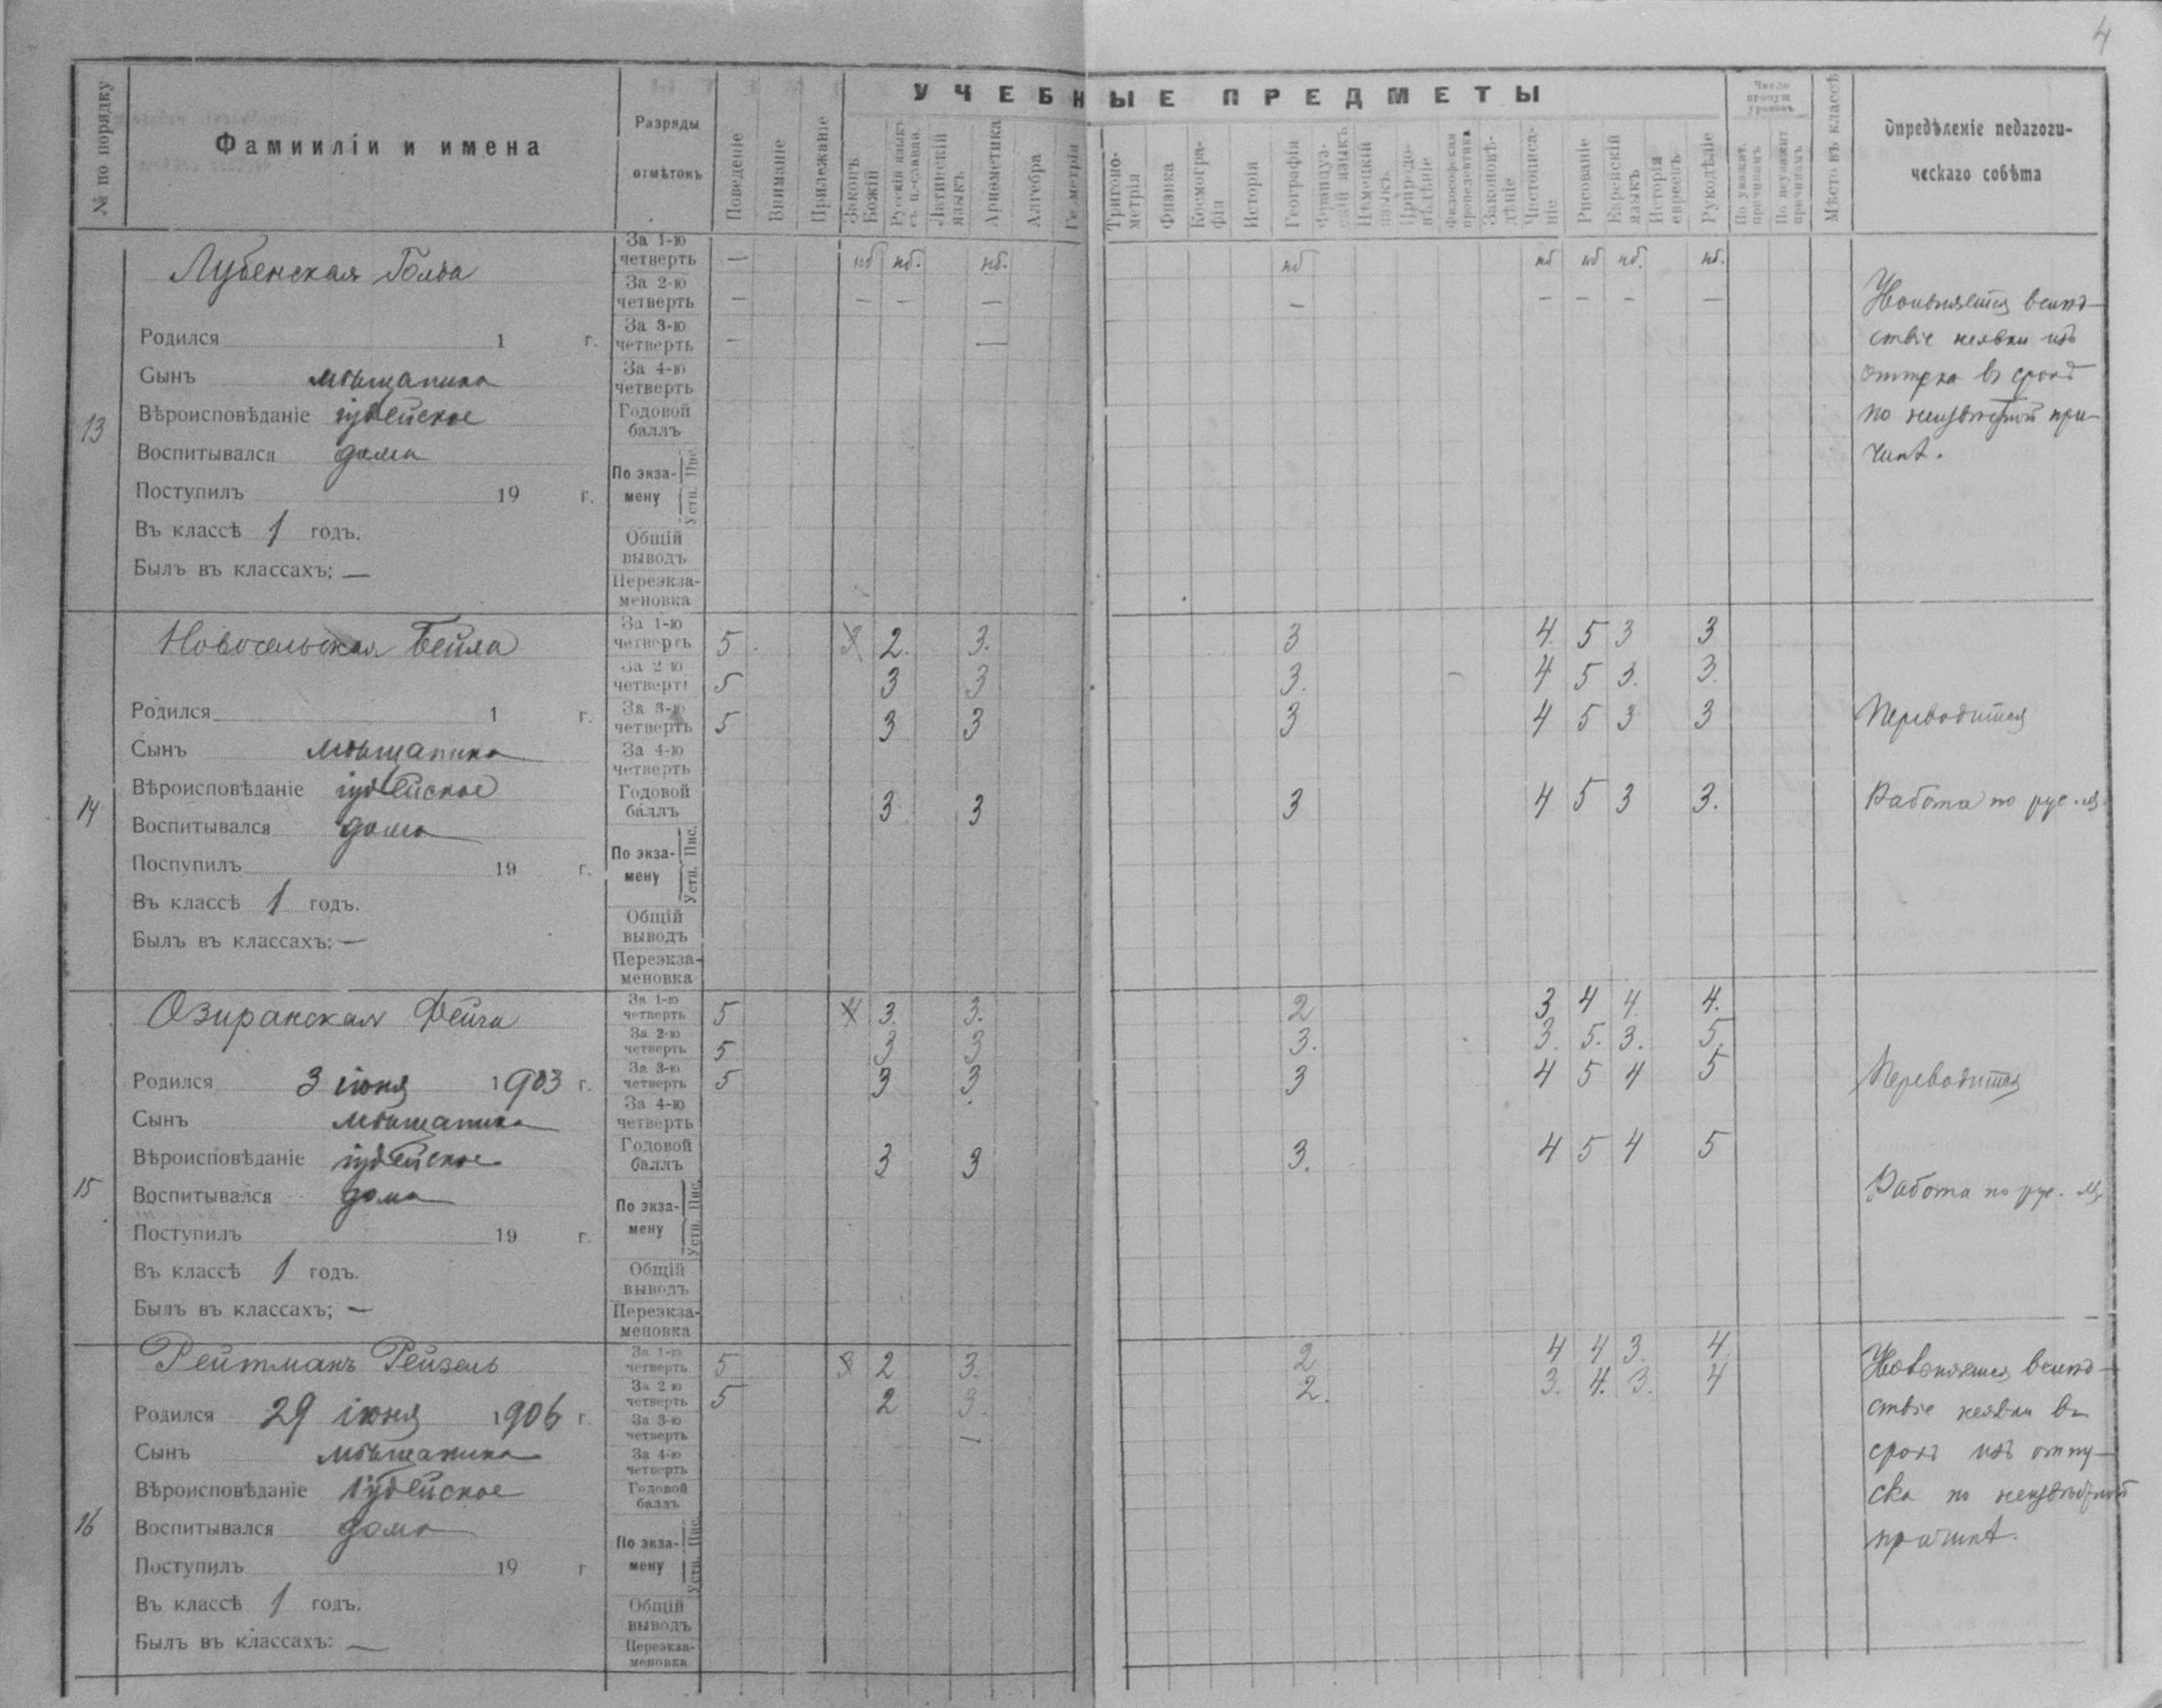 4
№ по порядку
Фамииліи и имена
Разряды
отмѣтокъ
Поведеніе
Вниманіе
Прилежаніе
УЧЕБНЫЕ ПРЕДМЕТЫ
Законъ
Божій
Русскій языкъ
съ ц-славян.
Латинскій
языкъ
Ариѳметика
Алгебра
Геметрія
Тригоно-
метрія
Физика
Космогра-
фія
Исторія
Географія
Француз-
скій языкъ
Нѣмецкій
языкъ
Природо-
вѣдѣніе
Философская
пропедевтика
Законовѣ-
дѣніе
Чистописа-
ніе
Рисованіе
Еврейскій
языкъ
Исторія
евреевъ
Рукодѣліе
Число
пропущ
уроковъ
По уважит.
причинамъ
По неуважит
причинамъ
Мѣсто въ классѣ
Опредѣленіе педагоги-
ческаго совѣта
13
Лубенская Голда
Родился 1 г.
Сынъ мѣщанина
Вѣроисповѣданіе іудейское
Воспитывался дома
Поступилъ 19 г.
Въ классѣ 1 годъ.
Былъ въ классахъ; —
За 1-ю
четверть — нб нб. нб. нб нб нб нб. нб.
За 2-ю
четверть — — — — — — — — —
За 3-ю
четверть — —
За 4-ю
четверть
Годовой
баллъ
По экза-
мену
Пис.
Устн.
Общій
выводъ
Переэкза-
меновка
вслѣд-
ствіе неявки изъ
отпуска въ срокъ
по неизвѣстной при-
чинѣ.
14
Новосельская Бейла
Родился 1 г.
Сынъ мѣщанина
Вѣроисповѣданіе іудейское
Воспитывался дома
Поспупилъ 19 г.
Въ классѣ 1 годъ.
Былъ въ классахъ: —
За 1-ю
четверть 5 2. 3. 3 4. 5 3 3
За 2-ю
четверть 5 3 3 3. 4 5 3. 3.
За 3-ю
четверть 5 3 3 3 4 5 3 3
За 4-ю
четверть
Годовой
баллъ 3 3 3 4 5 3 3.
По экза-
мену
Пис.
Устн.
Общій
выводъ
Переэкза-
меновка
Переводится
Работа по рус. яз.
15
Озиранская Фейга
Родился 3 іюня 1903 г.
Сынъ мѣщанина
Вѣроисповѣданіе іудейское
Воспитывался дома
Поступилъ 19 г.
Въ классѣ 1 годъ.
Былъ въ классахъ; —
За 1-ю
четверть 5 4 3. 3. 2 3 4 4 4.
За 2-ю
четверть 5 3 3 3. 3. 5. 3. 5.
За 3-ю
четверть 5 3 3 3 4 5 4 5
За 4-ю
четверть
Годовой
баллъ 3 3 3. 4 5 4 5
По экза-
мену
Пис.
Устн.
Общій
выводъ
Переэкза-
меновка
Переводится
Работа по рус. яз.
16
Рейтманъ Рейзель
Родился 29 іюня 1906 г.
Сынъ мѣщанина
Вѣроисповѣданіе іудейское
Воспитывался дома
Поступилъ 19 г
Въ классѣ 1 годъ.
Былъ въ классахъ: —
За 1-ю
четверть 5 2 3. 2 4 4 3. 4
За 2-ю
четверть 5 2 3. 2. 3. 4. 3. 4
За 3-ю
четверть —
За 4-ю
четверть
Годовой
баллъ
По экза-
мену
Пис.
Устн.
Общій
выводъ
Переэкза-
меновка
вслѣд-
ствіе неявки въ
срокъ изъ отпу-
ска по неизвѣстной
причинѣ.